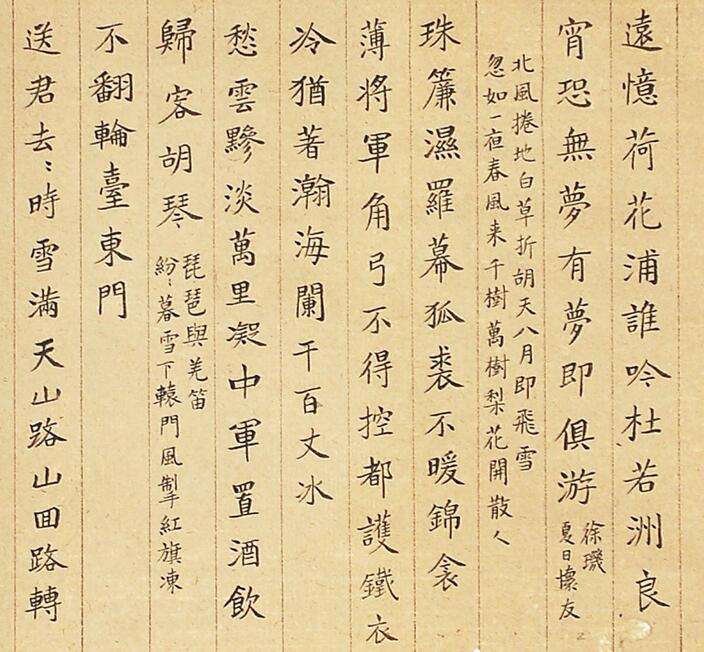 遠憶荷花浦誰吟杜若洲良
宵恐無夢有夢即俱游
徐璣
夏日懷友
北風捲地白草折胡天八月即飛雪
忽如一夜春風来千樹萬樹梨花開散入
珠簾濕羅幕狐裘不暖錦衾
薄將軍角弓不得控都護鐵衣
冷猶著瀚海闌干百丈冰
愁雲黲淡萬里凝中軍置酒飲
歸客胡琴
琵琶與羌笛
紛〻暮雪下轅門風掣紅旗凍
不翻輪臺東門
送君去〻時雪滿天山路山囬路轉